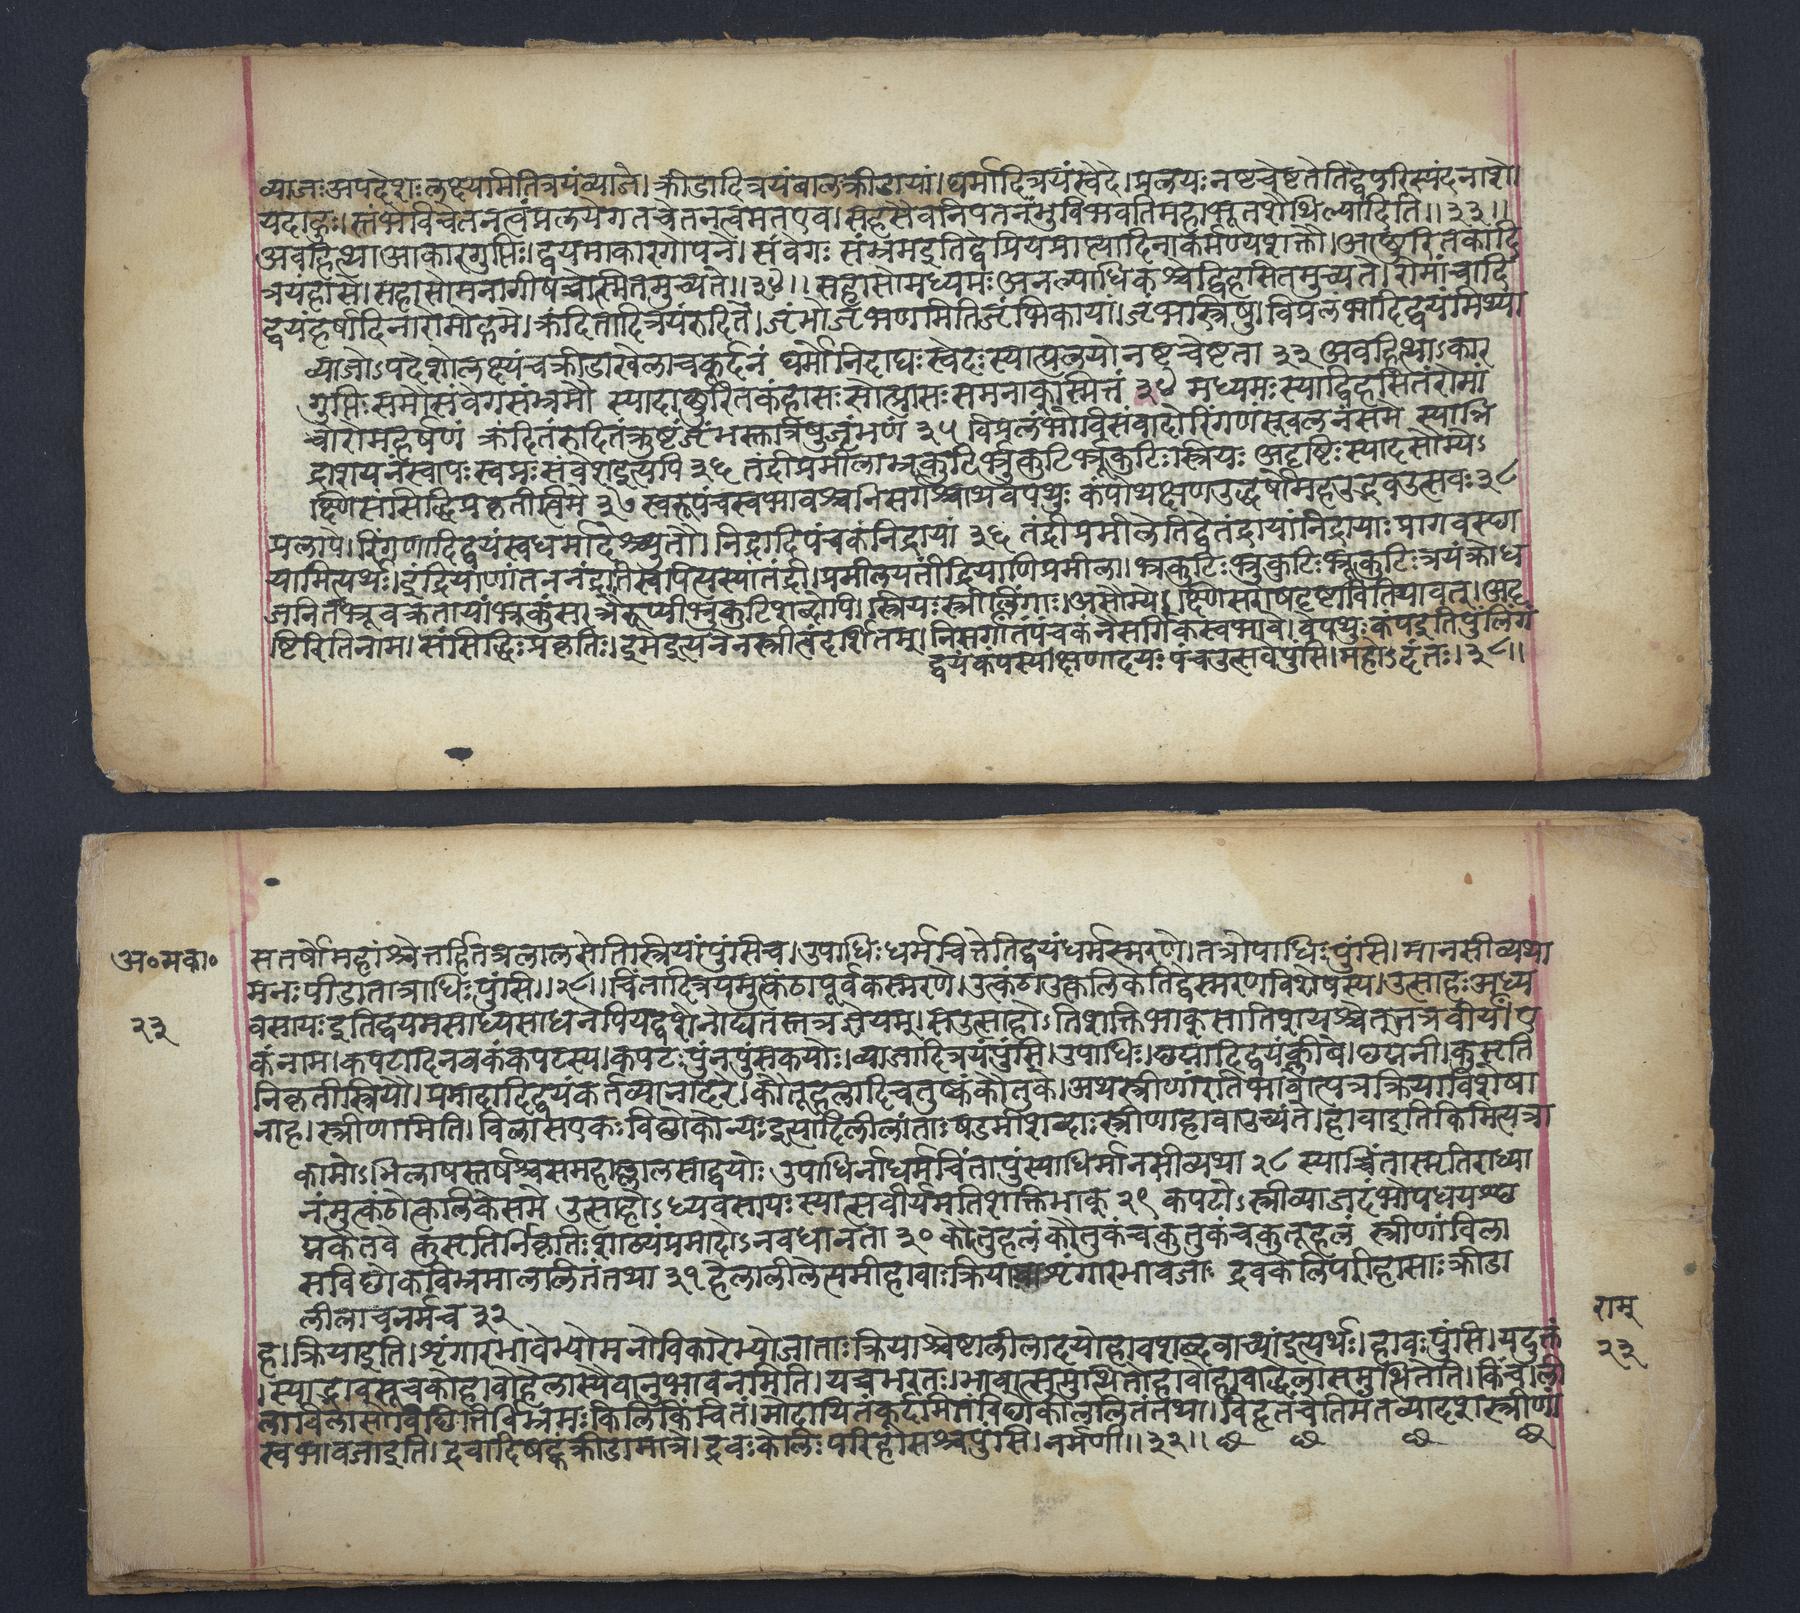 व्याजः अपदेशः लक्ष्यमितित्रयंव्याजे। क्रीडादित्रयंबालक्रीडायां। घर्मादित्रयंस्वेदे। प्रलयः नष्टचेष्टतेतिद्वेपरिस्पंदनाशे।
यदाहुः। स्तंभेविचेतनत्वंप्रलयेगतचेतनत्वमतएव। सहसैवनिपतनंभुविभवतिमहाभूतशैथिल्यादिति।। ३३।।
अवहित्था आकारगुप्तिः। द्वयमाकारगोपने। संवेगः संभ्रमइतिद्वेप्रियप्राप्त्यादिनाकर्मण्यशक्तौ। आच्छुरितकादि
त्रयंहासे। सहासोमनागीषच्चेस्मितमुच्यते।। ३४।। सहासोमध्यमः अनल्पाधिकश्चद्विहसितमुच्यते। रोमांचादि
द्वयंहर्षादिनारोमोद्गमे। क्रंदितादित्रयंरुदिते। जृंभोजृंभणमितिजृंभिकायां। जृंभास्त्रिषु। विप्रलंभादिद्वयंमिथ्या
व्याजोऽपदेशोलक्ष्यंचक्रीडाखेलाचकूर्दनं घर्मोनिदाघः स्वेदः स्यात्प्रलयोनष्टचेष्टता ३३ अवहित्थाऽकार
गुप्तिः समौसंवेगसंभ्रमौ स्यादाच्छुरितकंहासः सोत्प्रासः समनाक्स्मितं ३४ मध्यमः स्याद्विहसितंरोमां
चोरोमहर्षणं क्रंदितंरुदितंक्रुष्टंजृंभस्तुत्रिषुजृंभणं ३५ विप्रलंभोविसंवादोरिंगणंस्खलनंसमे स्यान्नि
द्राशयनंस्वापः स्वप्नः संवेशइत्यपि ३६ तंद्रीप्रमीलाभ्रकुटिर्भ्रुकुटिर्भ्रूकुटिः स्त्रियः अदृष्टिः स्यादसौम्ये
क्ष्णिसंसिद्धिप्रकृतीत्विमे ३७ स्वरूपंचस्वभावश्चनिसर्गश्चाथवेपथुः कंपोथक्षणउद्धर्षोमहउद्भवउत्सवः ३८
प्रलापे। रिंगणादिद्वयंस्वधर्मादेश्च्युतौ। निद्रादिपंचकंनिद्रायां ३६ तंद्रीप्रमीलेतिद्वेतंद्रायांनिद्रायाः प्रागवस्था
यामित्यर्थः। इंद्रियाणांतननंद्रातिस्वपित्यस्यांतंद्री। प्रमीलयंतींद्रियाणिप्रमीला। भ्रकुटिः भ्रुकुटिः भ्रूकुटिः त्रयंक्रोध
जनितेभ्रूवक्रतायां। भ्रकुंस। त्रैरूप्यीभ्रुकुटिशब्दोपि। स्त्रियः स्त्रीलिंगाः। असौम्ये। क्ष्णिसरोषदृष्टावितियावत्। अदृ
ष्टिरितिनाम। संसिद्धिः प्रकृतिः। इमेइत्यनेनस्त्रीत्वंदर्शितम्। निसर्गांतंपंचकंनैसर्गिकस्वभावे। वेपथुः कंपइतिपुंलिंगं
द्वयंकंपस्य। क्षणादयः पंचउत्सवेपुंसि। महोऽदंतः। ३८।।
अ॰मवा॰
२३
सतर्षोमहांश्चेत्तर्हितत्रलालसेतिस्त्रियांपुंसिच। उपाधिः धर्मचित्तेतिद्वयंधर्मस्मरणे। तत्रोपाधिः पुंसि। मानसीव्यथा
मनः पीडातत्राधिः पुंसि।। २८।। चिंतादित्रयमुत्कंठापूर्वकस्मरणे। उत्कंठाउत्कलिकेतिद्वेस्मरणविशेषस्य। उत्साहः अध्य
वसायः इतिद्वयमसाध्यसाधनेपियदुद्योगोनोद्यतंस्तत्रज्ञेयम्। सउत्साहोऽतिशक्तिभाक्सातिशयश्चेत्तत्रवीर्यंए
कंनाम। कपटादिनवकंकपटस्य। कपटः पुंनपुंसकयोः। व्याजादित्रयंपुंसि। उपाधिः। छद्मादिद्वयंक्लीबे। छद्मनी। कुसृति
निकृतीस्त्रियौ। प्रमादादिद्वयंकर्तव्यानादरे। कौतूहलादिचतुष्कंकौतुके। अथस्त्रीणांरतिभावोत्पन्नक्रियाविशेषा
नाह। स्त्रीणामिति। विलासएकः विब्बोकोन्यः इत्यादिलीलांताः षडमीशब्दाः स्त्रीणांहावाउच्यंते। हावाइतिकिमित्यत्रा
कामोऽभिलाषस्तर्षश्चसमहाल्लालसाद्वयोः उपाधिर्नाधर्मचिंतापुंस्याधिर्मानसीव्यथा २८ स्याच्चिंतास्मृतिराध्या
नंमुत्कंठोत्कलिकेसमे उत्साहोऽध्यवसायः स्यात्सवीर्यमतिशक्तिभाक् २९ कपटोऽस्त्रीव्याजदंभोपधयश्छ
द्मकैतवे कुसृतिर्निकृतिः शाठ्यंप्रमादोऽनवधानता ३० कौतुहलंकौतुकंचकुतुकंचकुतूहलं स्त्रीणांविला
सविब्बोकविभ्रमालालितंतथा ३१ हेलालीलेत्यमीहावाः क्रियाःशृंगारभावजाः द्रवकेलिपरीहासाः क्रीडा
लीलाचनर्मच ३२
ह। क्रियाइति। शृंगारभावेभ्योमनोविकारेभ्योजाताः क्रियाश्चेष्टालीलादयोहावशब्दवाच्याइत्यर्थः। हावः पुंसि। यदुक्तं
। स्याद्भावसूचकोहावोहेलास्यैवानुभावनमिति। यच्चभरतः। भावात्समुत्थितोहावोहावाद्धेलासमुत्थितेति। किंच। ली
लाविलासोविच्छित्तिर्विभ्रमः किलिकिंचितं। मोट्टायितंकुट्टमितंबिब्बोकोललितंतथा। विहृतंचेतिमंतव्यादशस्त्रीणां
स्वभावजाइति। द्रवादिषट्कंक्रीडामात्रे। द्रवः केलिः परिहासश्चपुंसि। नर्मणी।। ३२।।
राम्
२३